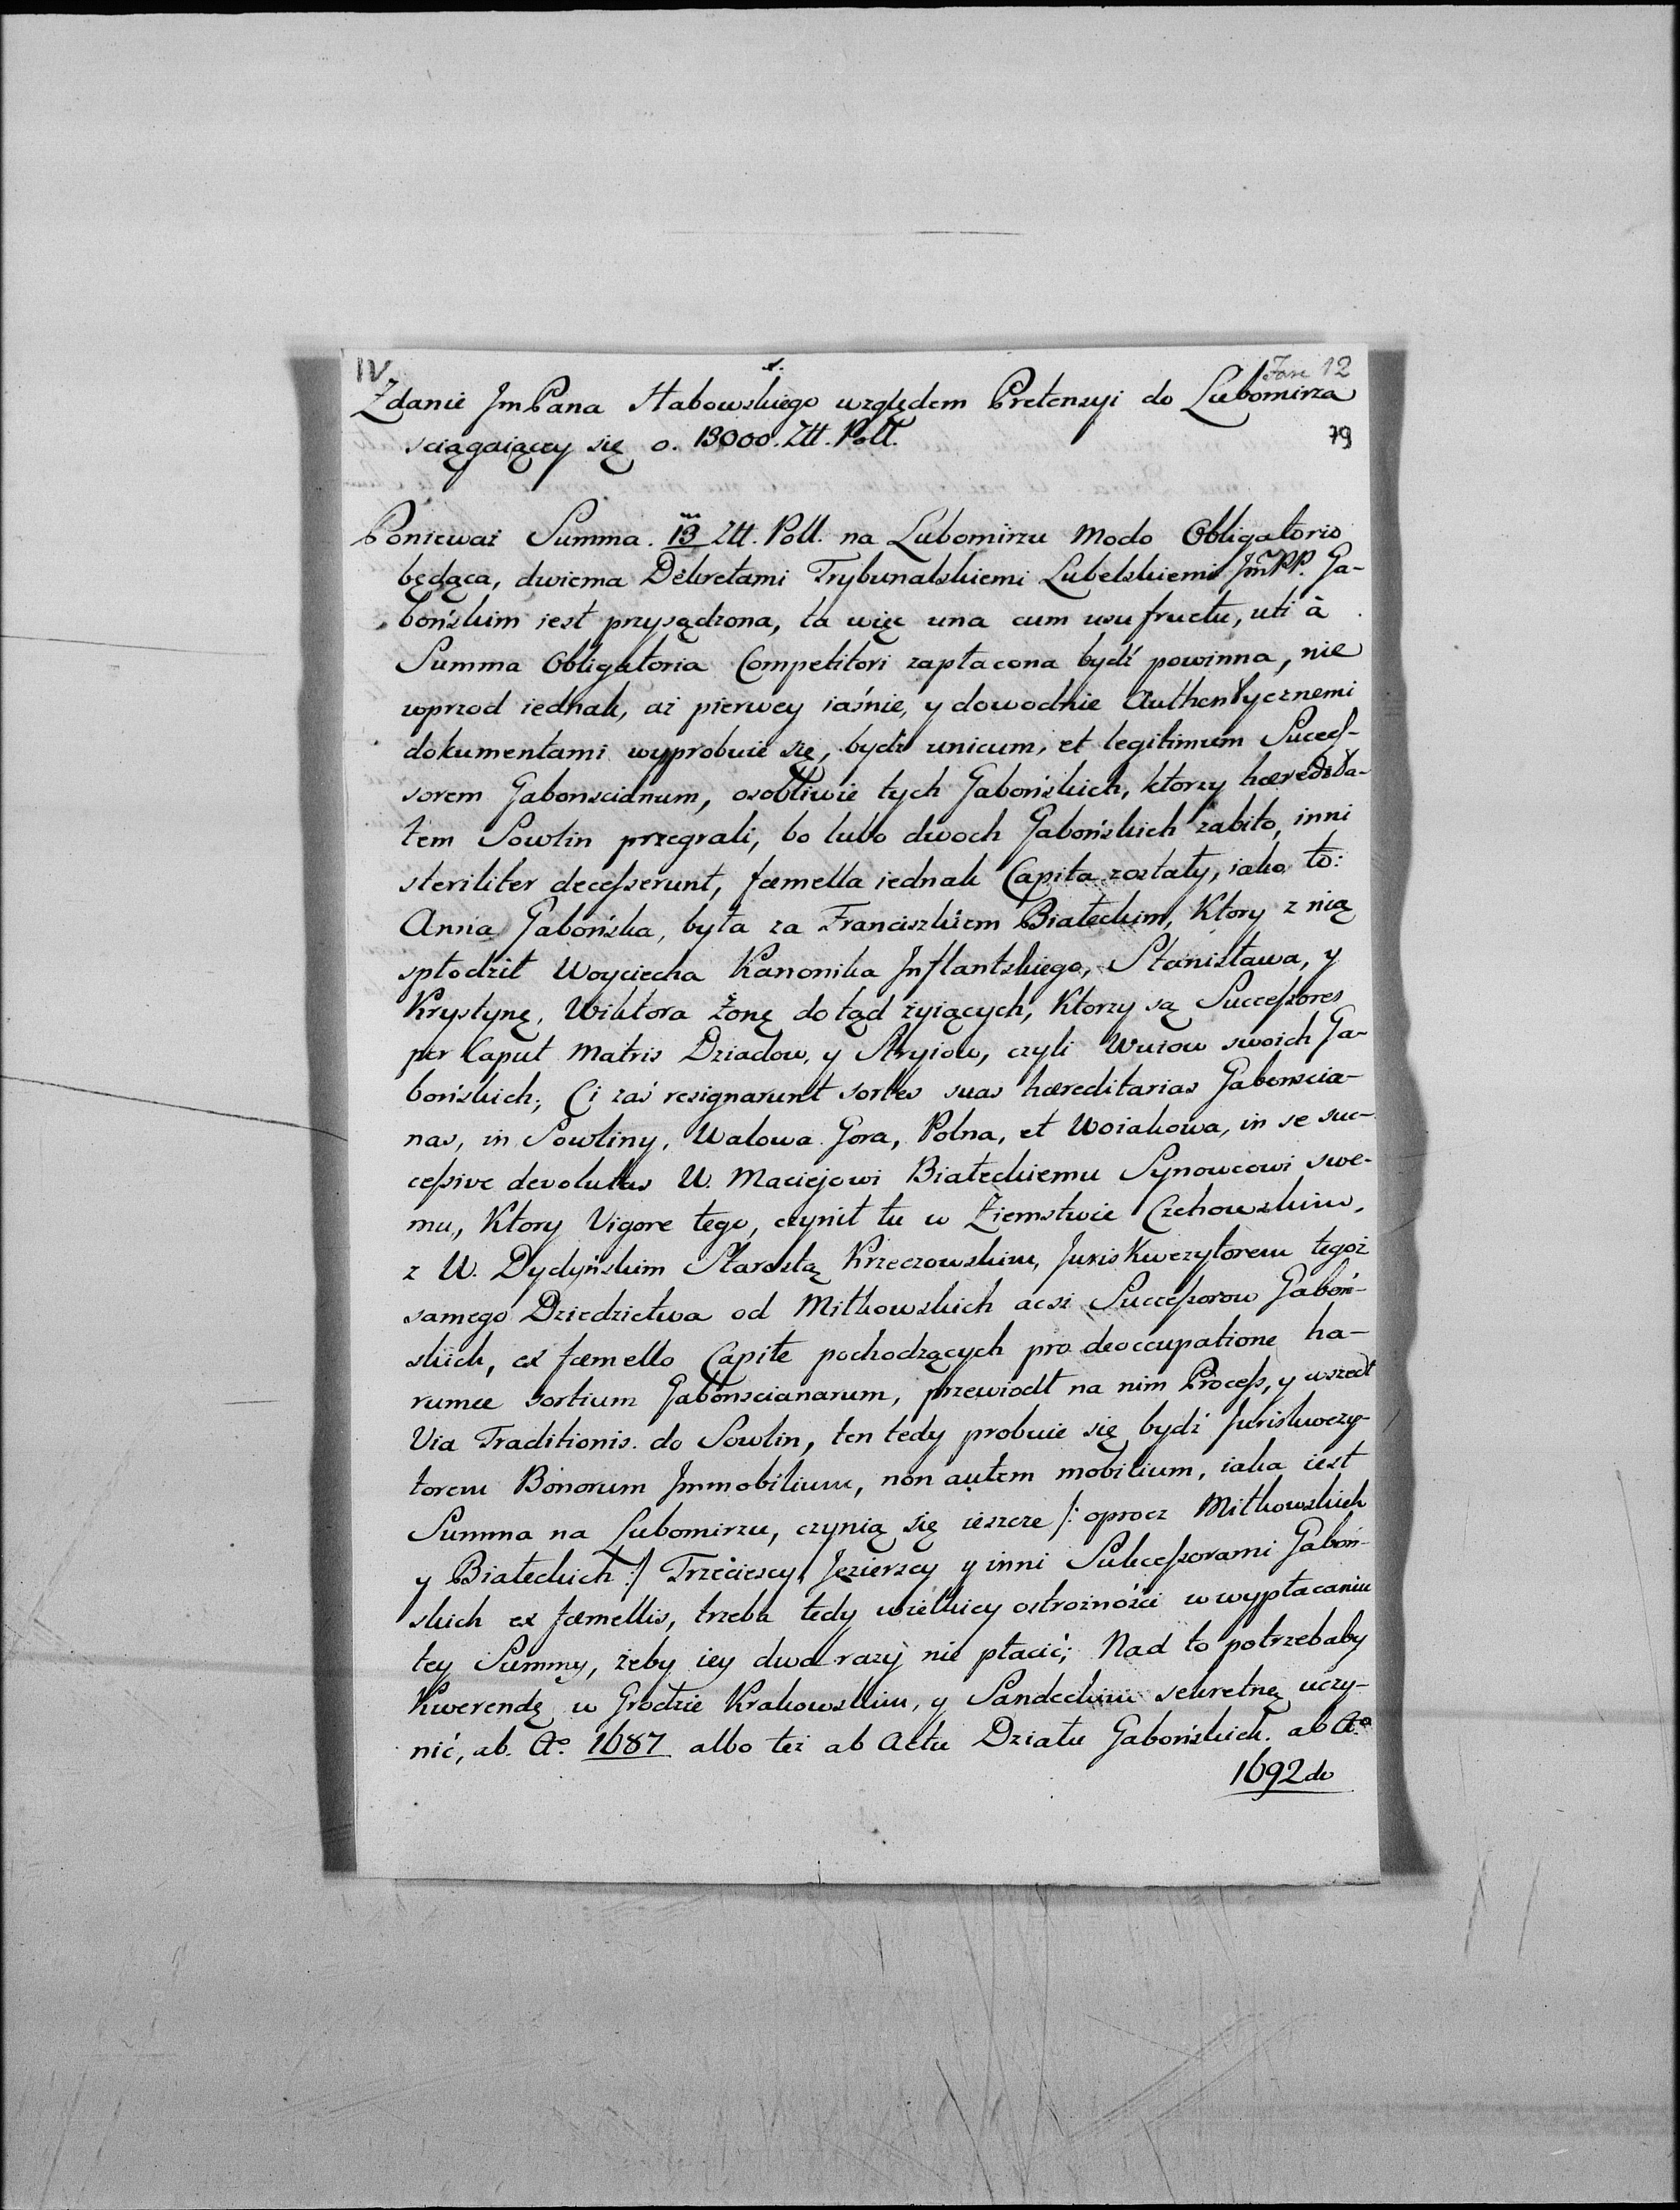 IV. 1. Fasc 12
Zdanie JmPana Stabowskiego względem Pretensyi do Lubomirza
sciągaiący się o. 13000. Złł. Poll. 79
Ponieważ Summa. 13 Złł. Poll. na Lubomirzu Modo Obligatorio
będąca, dwiema Dekretami Trybunalskiemi Lubelskiemi JmPP. Ga-
bońskim iest przysądzona, ta więc una cum usufructu, uti à
Summa Obligatoria Competitori zapłacona bydź powinna, nie
wprzod iednak, aż pierwey iaśnie, y dowodnie Authentycznemi
dokumentami wyprobuie się, bydź unicum, et legitimum Succeſ-
sorem Gabonscianum, osobliwie tych Gabońskich, ktorzy hæredita-
tem Sowlin przegrali, bo lubo dwoch Gabońskich zabito, inni
steriliter deceſserunt, fœmella iednak Capita zostały, iako to:
Anna Gabońska, była za Franciszkiem Białeckim, Ktory z nią
spłodził Woyciecha Kanonika Inflantskiego, Stanisława, y
Krystynę, Wiktora Żonę do tąd żyiących, Ktorzy są Succeſsores
per Caput Matris Dziadow, y Stryiow, czyli Wuiow swoich Ga-
bońskich; Ci zaś resignarunt sortes suas hæreditarias Gabonscia-
nas, in Sowliny, Walowa Gora, Polna, et Woiakowa, in se suc-
ceſsive devolutas W. Maciejowi Białeckiemu Synowcowi swe-
mu, Ktory Vigore tego, czynił tu w Ziemstwie Czchowskim,
z W. Dydyńskim Starostą Krzeczowskim, Juris Kwezytorem tegoż
samego Dziedzictwa od Miłkowskich acsi Succeſsorow Gaboń-
skich, ex fœmello Capite pochodzących pro deoccupatione ha-
rumce sortium Gabonscianarum, przewiodł na nim Proceſs, y wszedł
Via Traditionis. do Sowlin, ten tedy probuie się bydź Juriskwezy-
torem Bonorum Immobilium, non autem mobilium, iaka iest
Summa na Lubomirzu, czynią się ieszcze /: oprocz Miłkowskich
y Białeckich :/ Trzeciescy, Jezierscy y inni Sukceſsorami Gaboń-
skich ex fœmellis, trzeba tedy wielkiey ostrożności w wypłacaniu
tey Summy, żeby iey dwa razy nie płacić; Nad to potrzebaby
Kwerendę w Grodzie Krakowskim, y Sandeckim sekretnę uczy-
nić, ab. Aº. 1687 albo też ab Actu Działu Gabońskich. ab Aº
1692 do